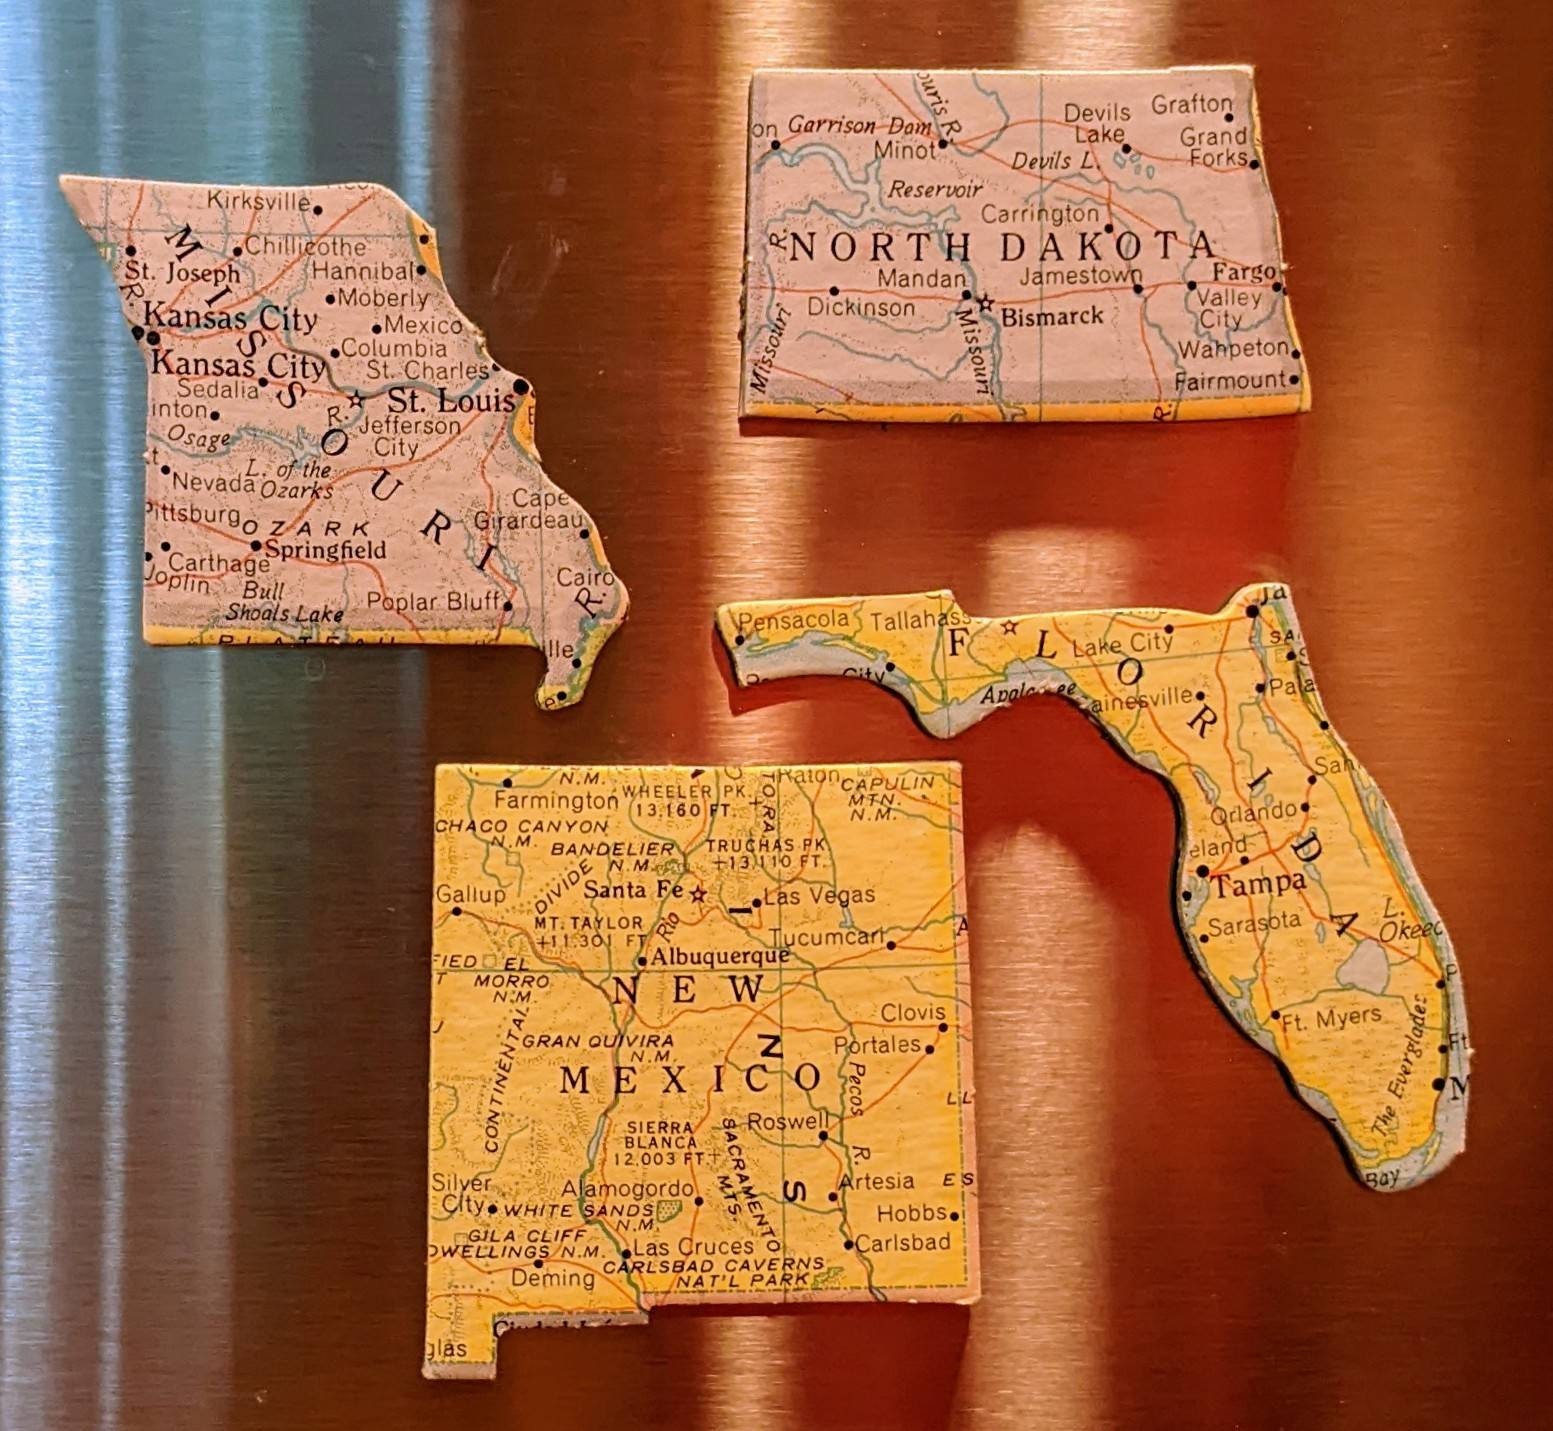 Kirksville
MISSOURI
Chillicothe
St. Joseph
Hannibal
R.
Moberly
Kansas City
Mexico
Columbia
Kansas City
St. Charles
Sedalia
St. Louis
inton
R.
Jefferson
City
Osage
L. of the
Ozarks
Nevada
Cape
Girardeau
Pittsburg
OZARK
Springfield
Carthage
Joplin
Cairo
R.
Bull
Shoals Lake
Poplar Bluff
PLATEAU
lle
e
ouris R.
Grafton
Devils
Lake
on
Garrison Dam
Grand
Forks
Minot
Devils L.
Reservoir
Carrington
R.
NORTH DAKOTA
Mandan
Jamestown
Fargo
Dickinson
Bismarck
Valley
City
Missouri
Missouri
Wahpeton
Fairmount
R.
Ja
Pensacola
Tallahass
FLORIDA
Lake City
SA
S
City
Apalachee
ainesville
Pala
San
Orlando
eland
Tampa
Sarasota
L.
Okeec
P
Ft. Myers
The Everglades
Ft
M
Bay
N.M.
Raton
Farmington
WHEELER PK.
13,160 FT.
TO RA
CAPULIN
MTN.
N.M.
CHACO CANYON
N.M.
BANDELIER
N.M.
TRUCHAS PK
+13,110 FT.
DIVIDE
Gallup
Santa Fe
I
Las Vegas
MT. TAYLOR
+11,301 FT
Rio
Tucumcari
A
Albuquerque
FIED
EL
MORRO
N.M.
T
NEW
Clovis
GRAN QUIVIRA
N.M.
N
Portales
CONTINENTAL
MEXICO
Pecos
R.
LL
SIERRA
BLANCA
12,003 FT+
SACRAMENTO
MTS.
Roswell
Silver
City
Alamogordo
S
Artesia
ES
WHITE SANDS
N.M.
Hobbs
GILA CLIFF
DWELLINGS N.M.
Las Cruces
O
Carlsbad
CARLSBAD CAVERNS
NAT'L PARK
Deming
glas